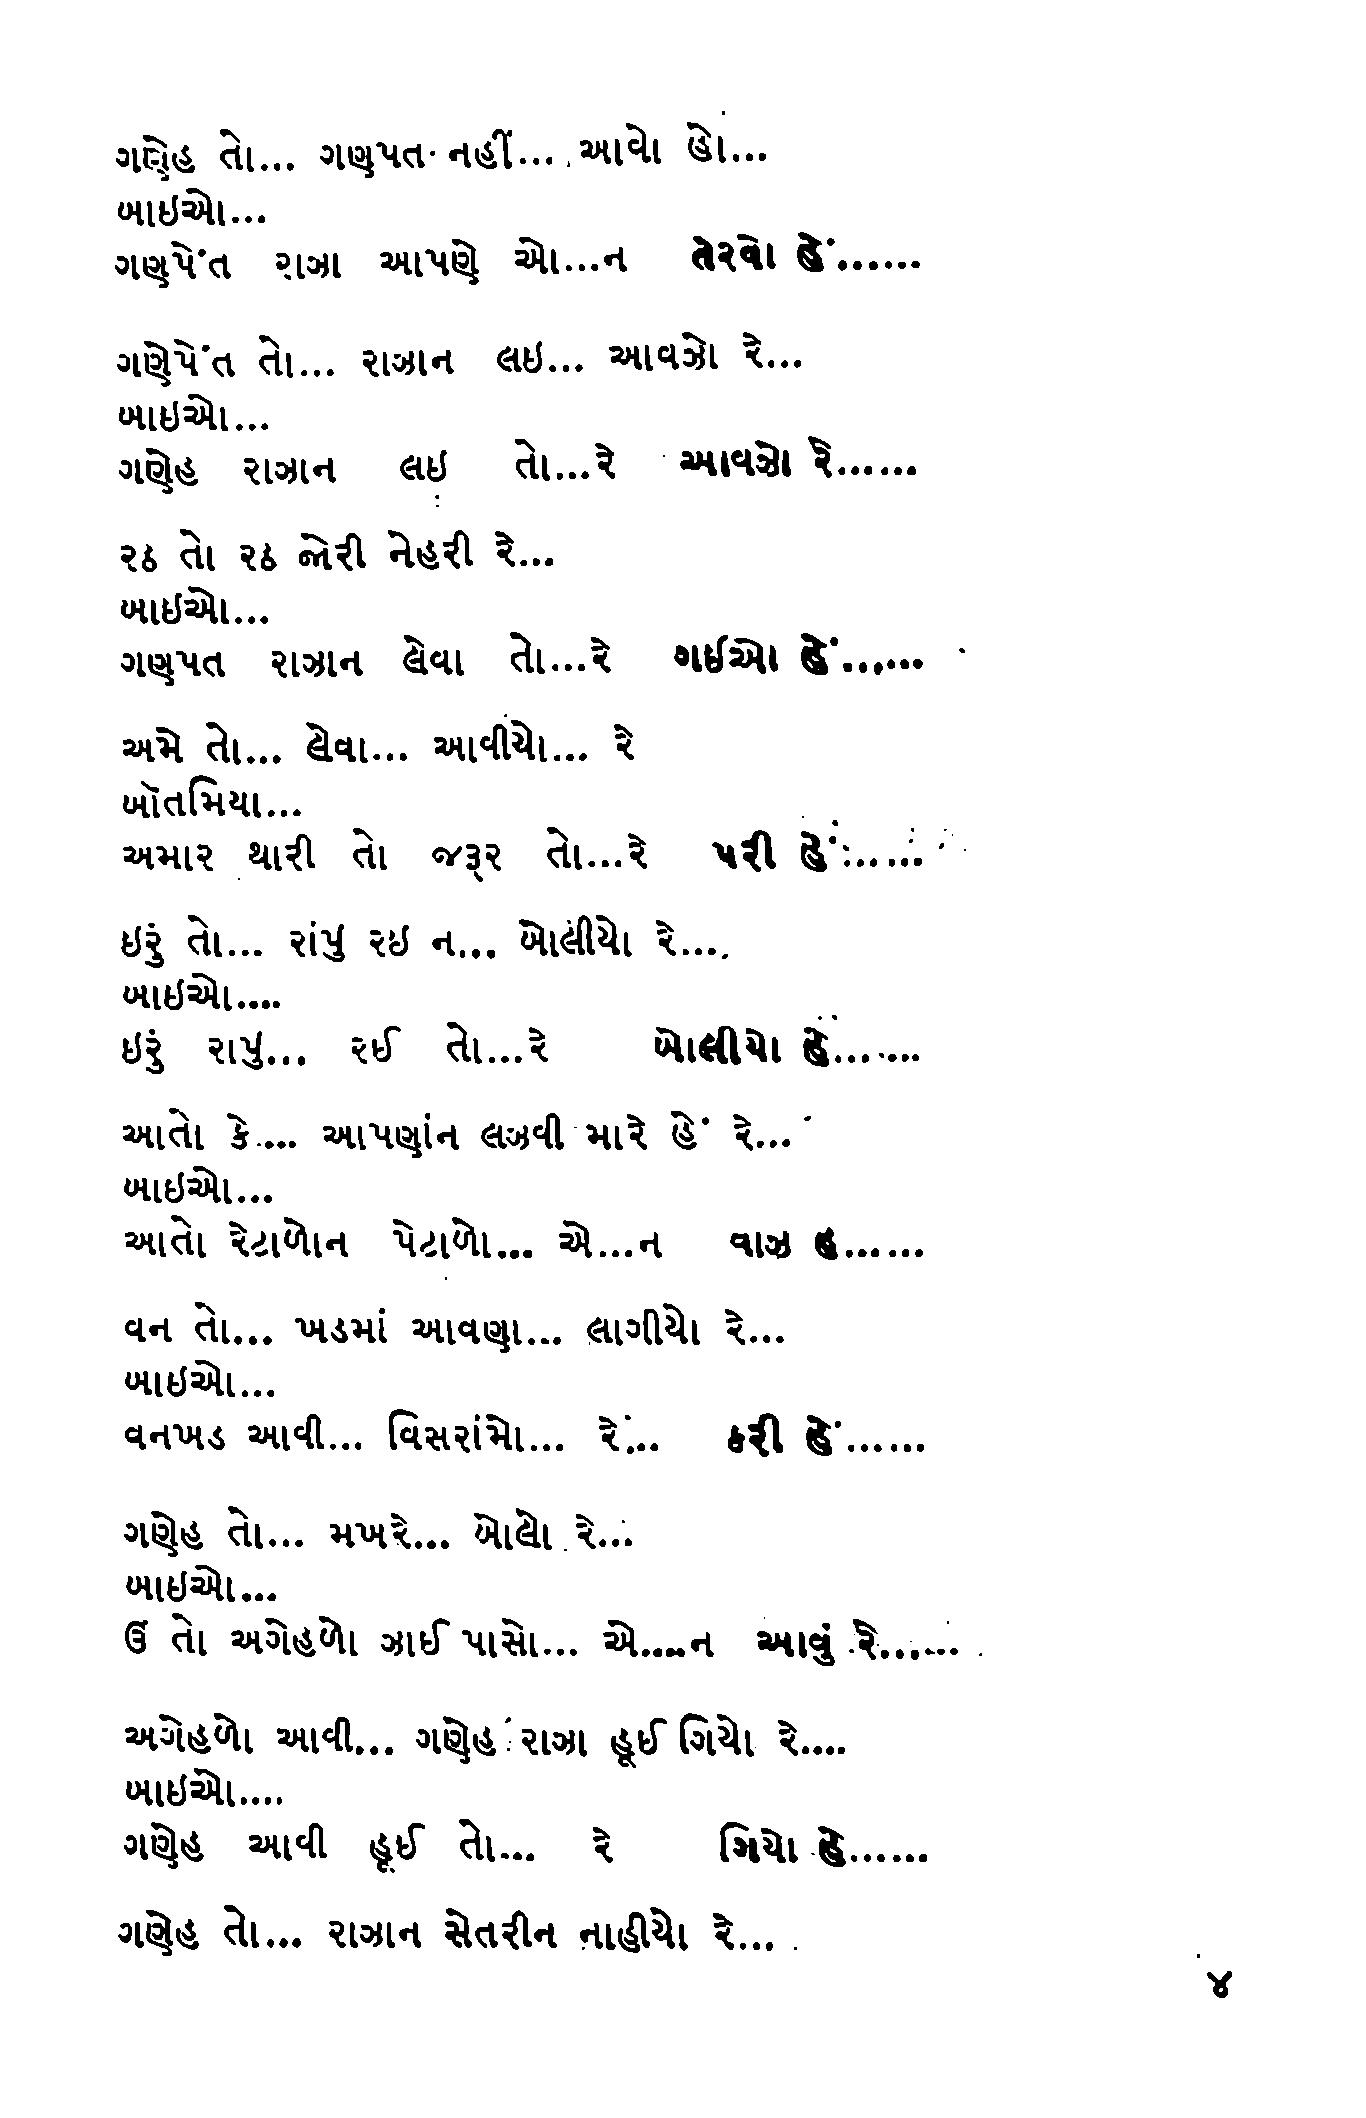 ગણેહ તો... ગણપત નહીં... આવો હો...
ખાઇઓ...
ગણપેંત રાઝા આપણે ઓ...ન તેરવો હેં......
ગણેપેંત તો... રાઝાન લઇ... આવઝો રે...
ખાઇઓ...
ગણેહ રાઝાન લઇ તો...રે આવઝો રે......
રઠ તો રઠ જોરી નેહરી રે...
ખાઇઓ...
ગણપત રાઝાન લેવા તો...રે ગઈઓ હેં......
અમે તો... લેવા... આવીયો... રે
ખૉતમિયા...
અમાર થારી તો જરૂર તો...રે પરી હેં......
ઇરું તો... રાંપું રઇ ન... ખોલીયો રે....
ખાઇઓ....
ઇરું રાપું... રઈ તો...રે ખોલીયો હે.......
આતો કે.... આપણાંન લઝવી મારે હેં રે...
ખાઇઓ...
આતો રેટાળોન પેટાળો... એ...ન વાઝ હ......
વન તો... ખડમાં આવણા... લાગીયો રે...
ખાઇઓ...
વનખડ આવી... વિસરાંમો... રે... કરી હેં......
ગણેહ તો... મખરે... ખોલો રે...
ખાઇઓ...
ઉં તો અગેહળો ઝાઈ પાસો... એ....ન આવું રે......
અગેહળો આવી... ગણેહ રાઝા હૂઈ ગિયો રે....
ખાઇઓ....
ગણેહ આવી હૂઈ તો... રે ગિયો હે......
ગણેહ તો... રાઝાન સેતરીન નાહીયો રે...
૪